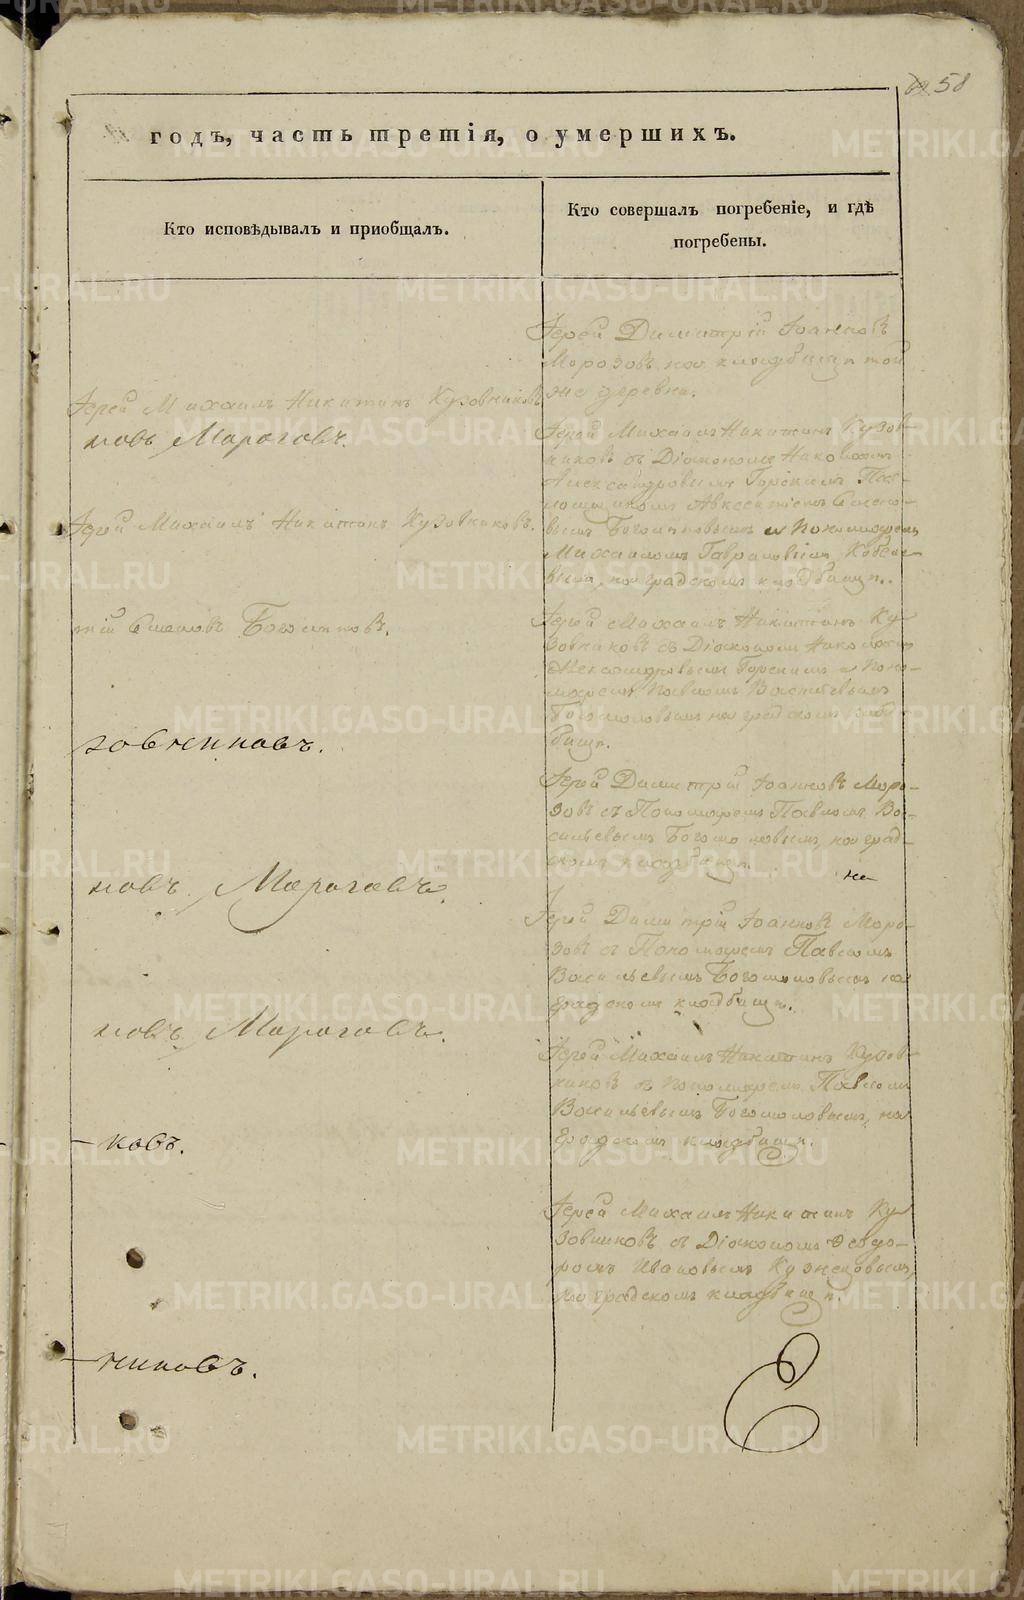 58
годъ, часть третія, о умершихъ.
Кто исповѣдывалъ и приобщалъ.
Кто совершалъ погребеніе, и гдѣ
погребены.
Іерей Димитрій Іоанновъ
Морозовъ на кладбищѣ той
же деревни.
Іерей Михаилъ Никитинъ Кузовников
новъ Морозовъ.
Іерей Михаилъ Никитинъ Кузов-
никовъ съ Діакономъ Николаем
Александровымъ Горскимъ
Богомповымъ и Пономаремъ
Михаиломъ Гавриловымъ
на градскомъ кладбищѣ.
Іерей Михаилъ Никитинъ Кузовниковъ.
Іерей Михаилъ Никитинъ Ку
зовниковъ съ Діакономъ Николаем
Александровымъ Горскимъ и Поно-
маремъ Павломъ Васильевымъ
Богомоловымъ на градскомъ клад
бищѣ.
зовниковъ.
Іерей Димитрій Іоанновъ Моро-
зовъ съ Пономаремъ Павломъ Ва-
сильевымъ Богомоловымъ, на град-
скомъ кладбищѣ.
новъ Морозовъ.
на
Іерей Димитрій Іоанновъ Моро-
зовъ съ Пономаремъ Павломъ
Васильевымъ Богомоловымъ на
градскомъ кладбищѣ.
новъ Морозовъ.
Іерей Михаилъ Никитинъ Кузов-
никовъ съ Пономаремъ Павломъ
Васильевымъ Богомоловымъ, на
градскомъ кладбищѣ.
ковъ.
Іерей Михаилъ Никитинъ Ку
зовниковъ съ Діакономъ Ѳеодо-
ромъ Ивановымъ Кузнецовымъ,
на градскомъ кладбищѣ.
никовъ.
METRIKI.GASO-URAL.RU